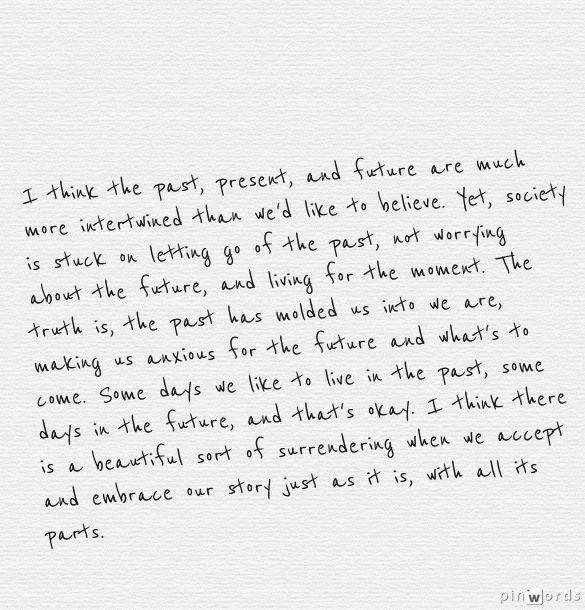 I think the past, present, and future are much
more intertwined than we'd like to believe. Yet, society
is stuck on letting go of the past, not worrying
about the future, and living for the moment. The
truth is, the past has molded us into we are,
making us anxious for the future and what's to
come. Some days we like to live in the past, some
days in the future, and that's okay. I think there
is a beautiful sort of surrendering when we accept
and embrace our story just as it is, with all its
parts.
pinwords